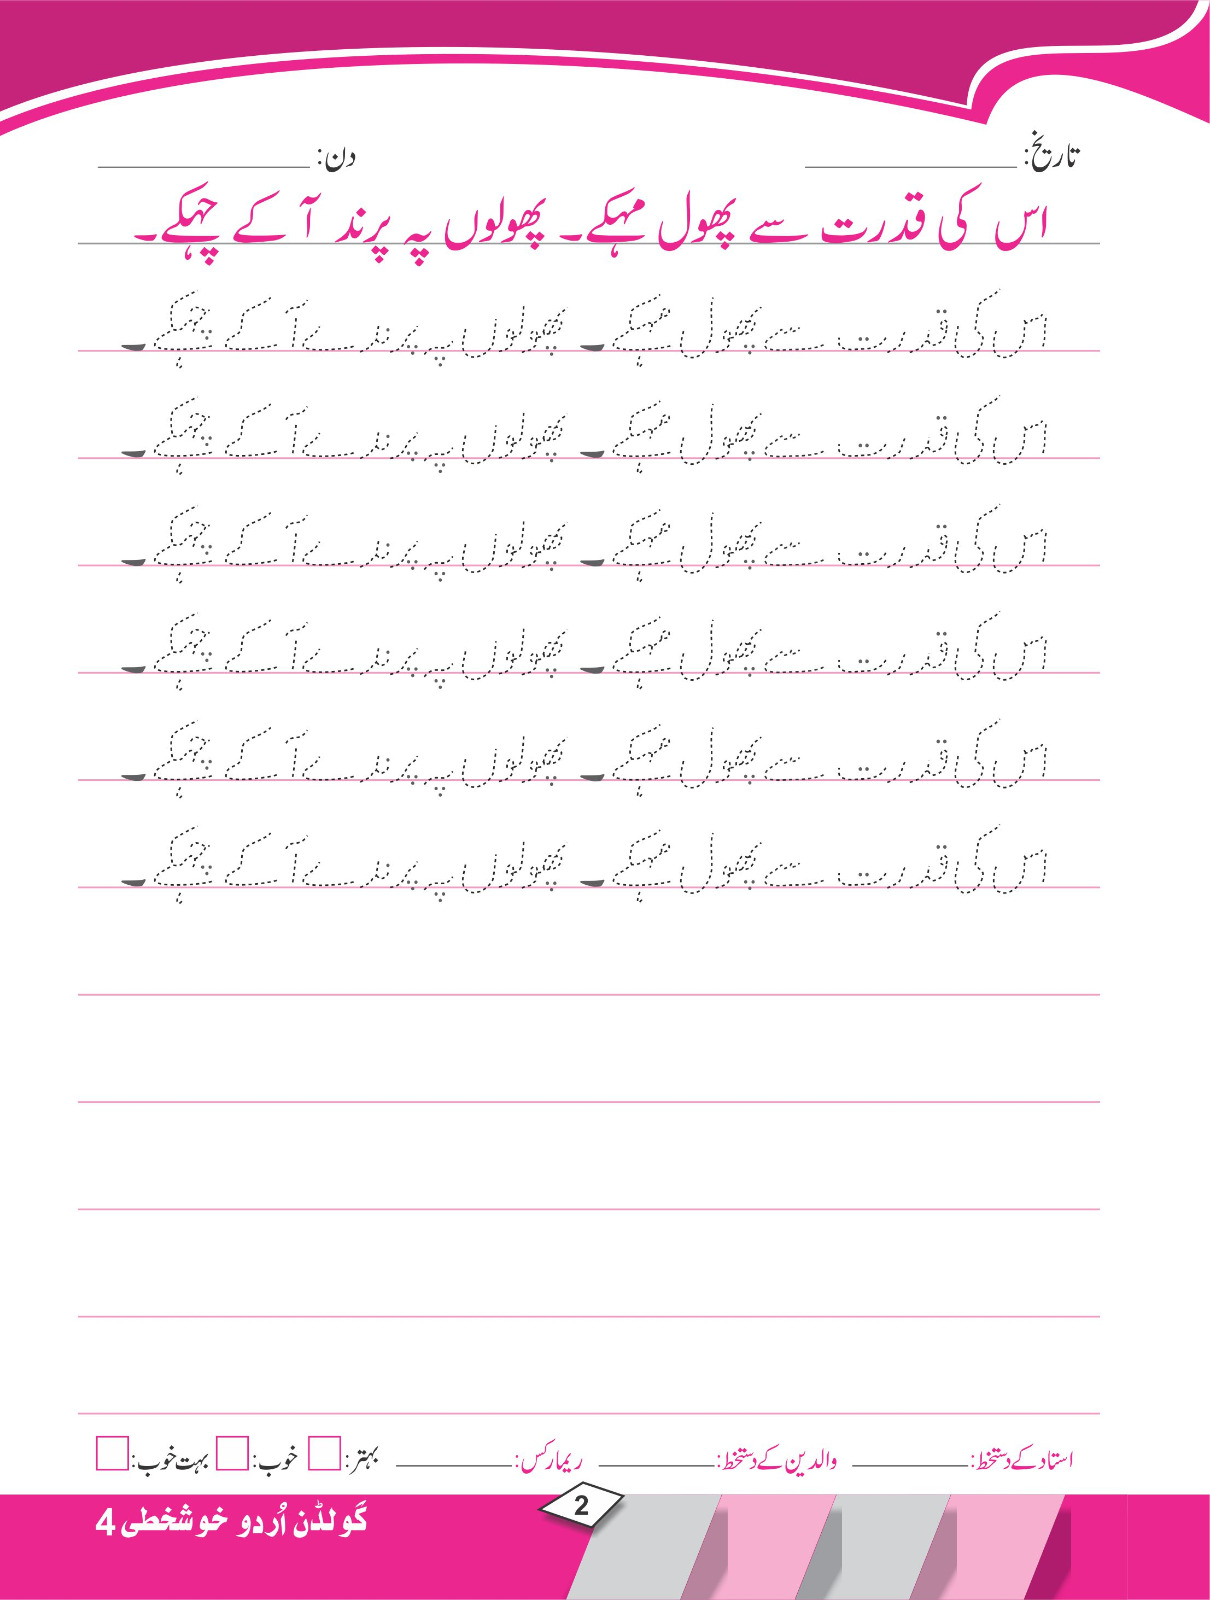 تاریخ: ____________ دن: ____________
اس کی قدرت سے پھول مہکے۔ پھولوں پہ پرند آ کے چہکے۔
اس کی قدرت سے پھول مہکے۔ پھولوں پہ پرندے آ کے چہکے۔
اس کی قدرت سے پھول مہکے۔ پھولوں پہ پرندے آ کے چہکے۔
اس کی قدرت سے پھول مہکے۔ پھولوں پہ پرندے آ کے چہکے۔
اس کی قدرت سے پھول مہکے۔ پھولوں پہ پرندے آ کے چہکے۔
اس کی قدرت سے پھول مہکے۔ پھولوں پہ پرندے آ کے چہکے۔
اس کی قدرت سے پھول مہکے۔ پھولوں پہ پرندے آ کے چہکے۔
استاد کے دستخط: ________ والدین کے دستخط: ________ ریمارکس: ________ بہتر: خوب: بہت خوب:
2
گولڈن اُردو خوشخطی 4